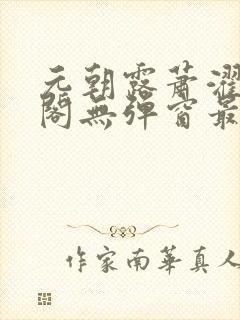 元朝露蕭濯
閣無弹窗最
作家南華真人